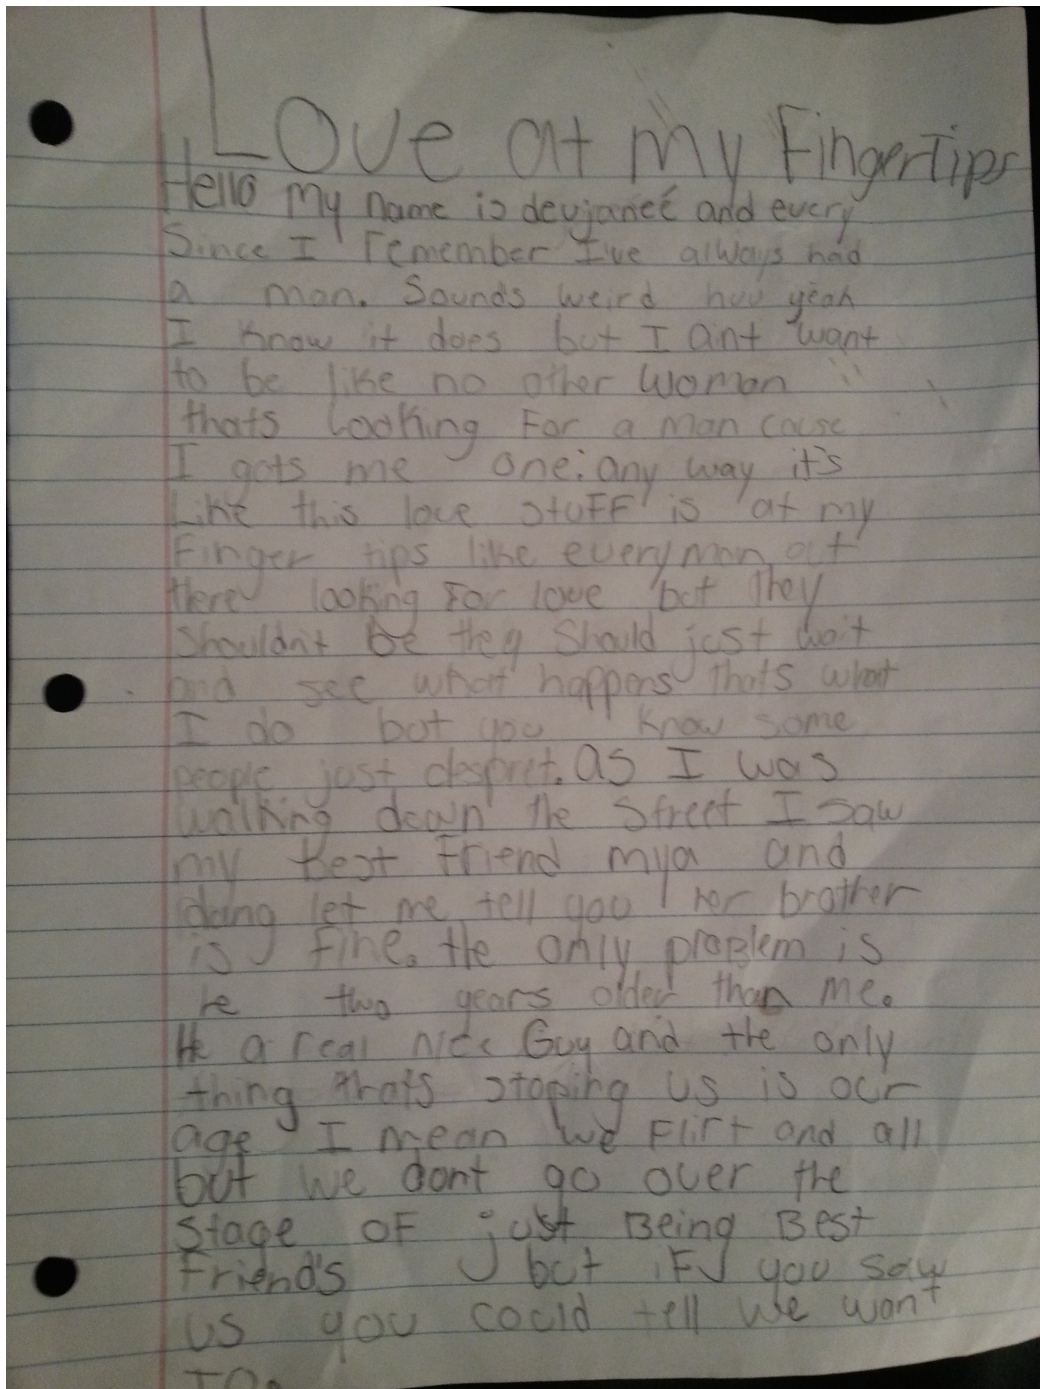 Love at my FingerTips
Hello my name is devjaneé and every
Since I remember I've always had
a man. Sounds weird huu yeah
I know it does but I aint want
to be like no other woman
thats looking For a man cause
I gots me one: any way it's
Like this love stuFF is at my
Finger tips like every man out
there looking For love but they
shouldn't be they Should just wait
and see what happens thats what
I do but you know some
people just despret. as I was
walking down the Street I saw
my best Friend mya and
dang let me tell you her brother
is Fine. the only problem is
he two years older than me.
He a real nice Guy and the only
thing that's stoping us is our
age I mean we Flirt and all
but we dont go over the
stage OF just Being Best
Friend's but iF you saw
us you could tell we want
TO.